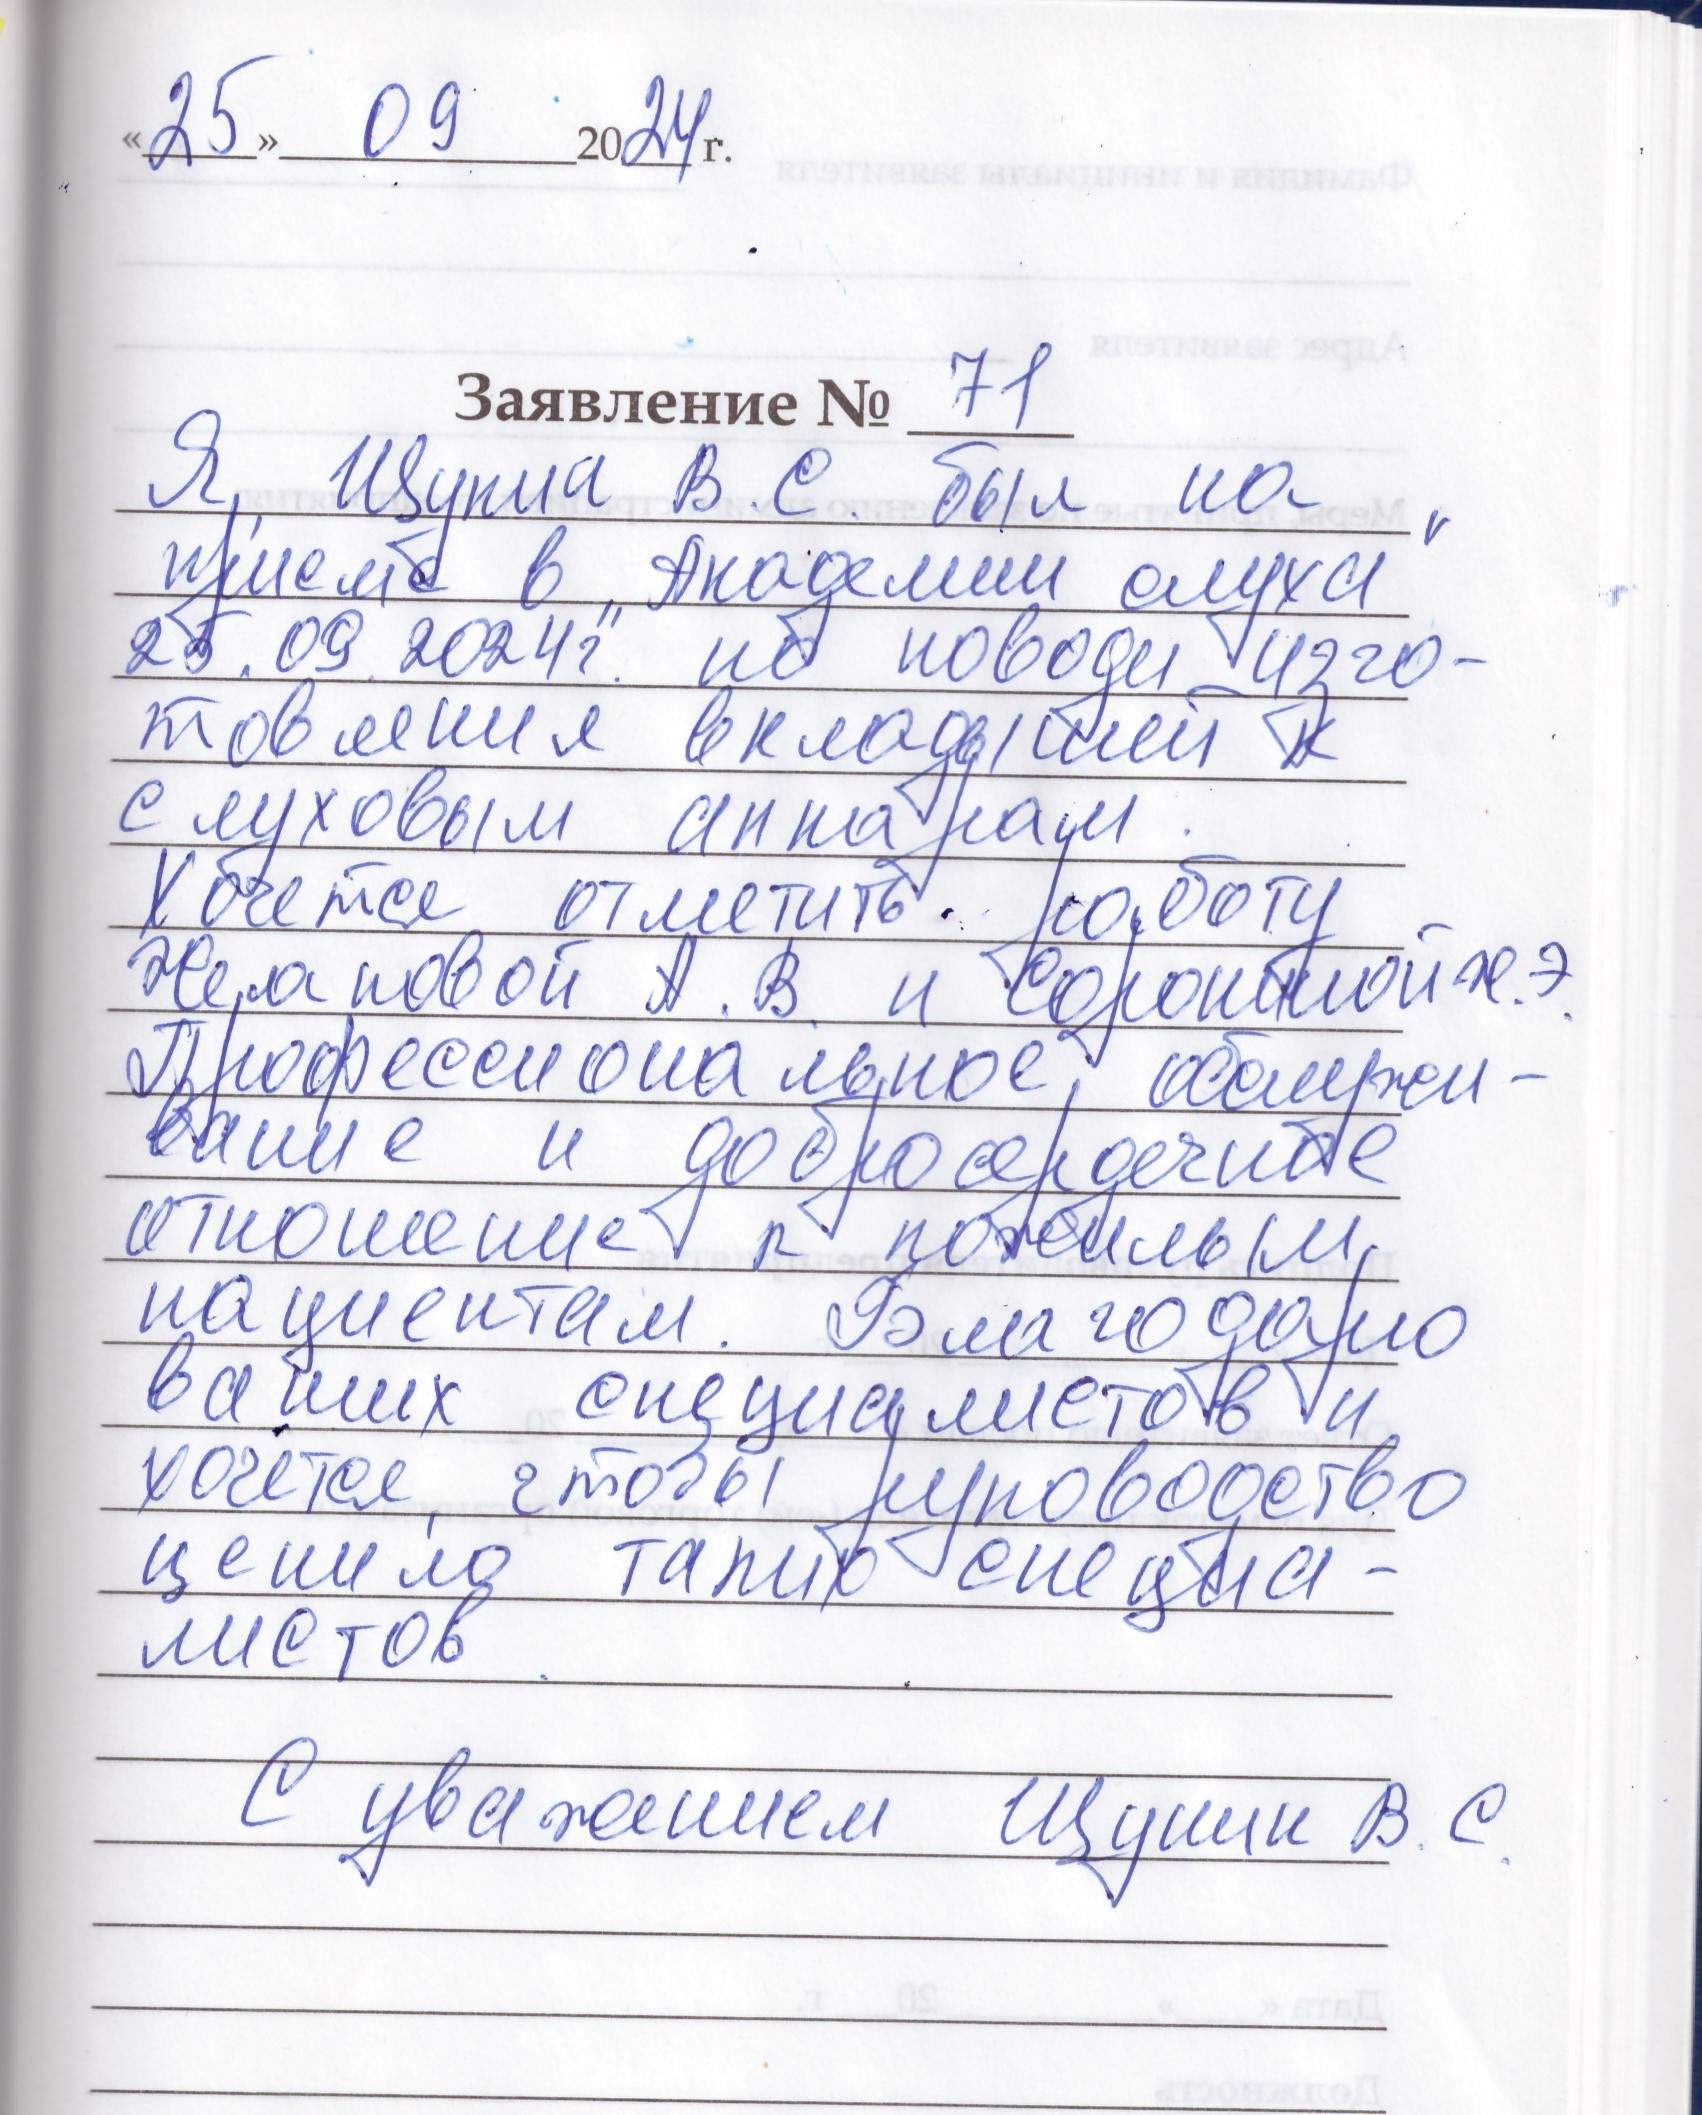 «25» 09 2024 г.
Заявление № 71
Я, Щукин В. С. был на
приеме в „Академии слуха"
25.09.2024г. по поводу изго-
товления вкладышей к
слуховым аппаратам.
Хочется отметить работу
А. В. и Сорокиной Ж. Э.
Профессиональное обслужи-
вание и добросердечное
отношение к пожилым
пациентам. Благодарю
ваших специалистов и
хочется, чтобы руководство
ценило таких специа-
листов.
С уважением Щукин В. С.